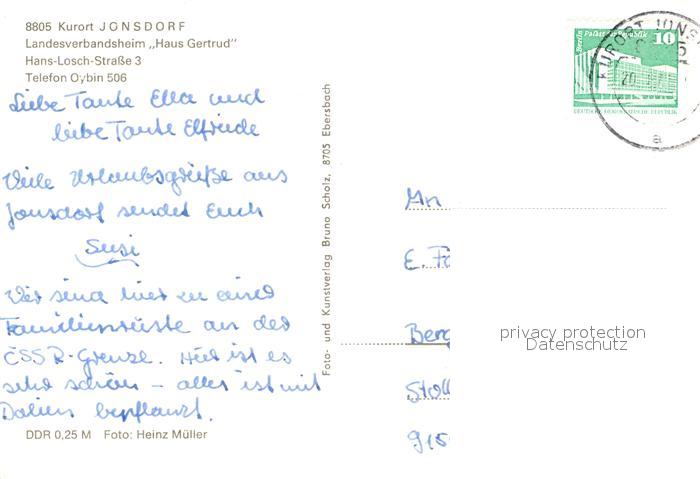 8805 Kurort JONSDORF
Landesverbandsheim „Haus Gertrud"
Hans-Losch-Straße 3
Telefon Oybin 506
Liebe Tante Ella und
liebe Tante Elfriede
Viele Urlaubsgrüße aus
Jonsdorf sendet Euch
Susi
Wir sind hier zu einer
Familienrüste an der
ČSSR-Grenze. Hier ist es
sehr schön – alles ist mit
Dalien bepflanzt.
DDR 0,25 M Foto: Heinz Müller
Foto- und Kunstverlag Bruno Scholz, 8705 Ebersbach
Berlin Palast der Republik
10
DEUTSCHE DEMOKRATISCHE REPUBLIK
KURORT JONS
20
a
An
E. Fö
Berg
Stoll
915
privacy protection
Datenschutz